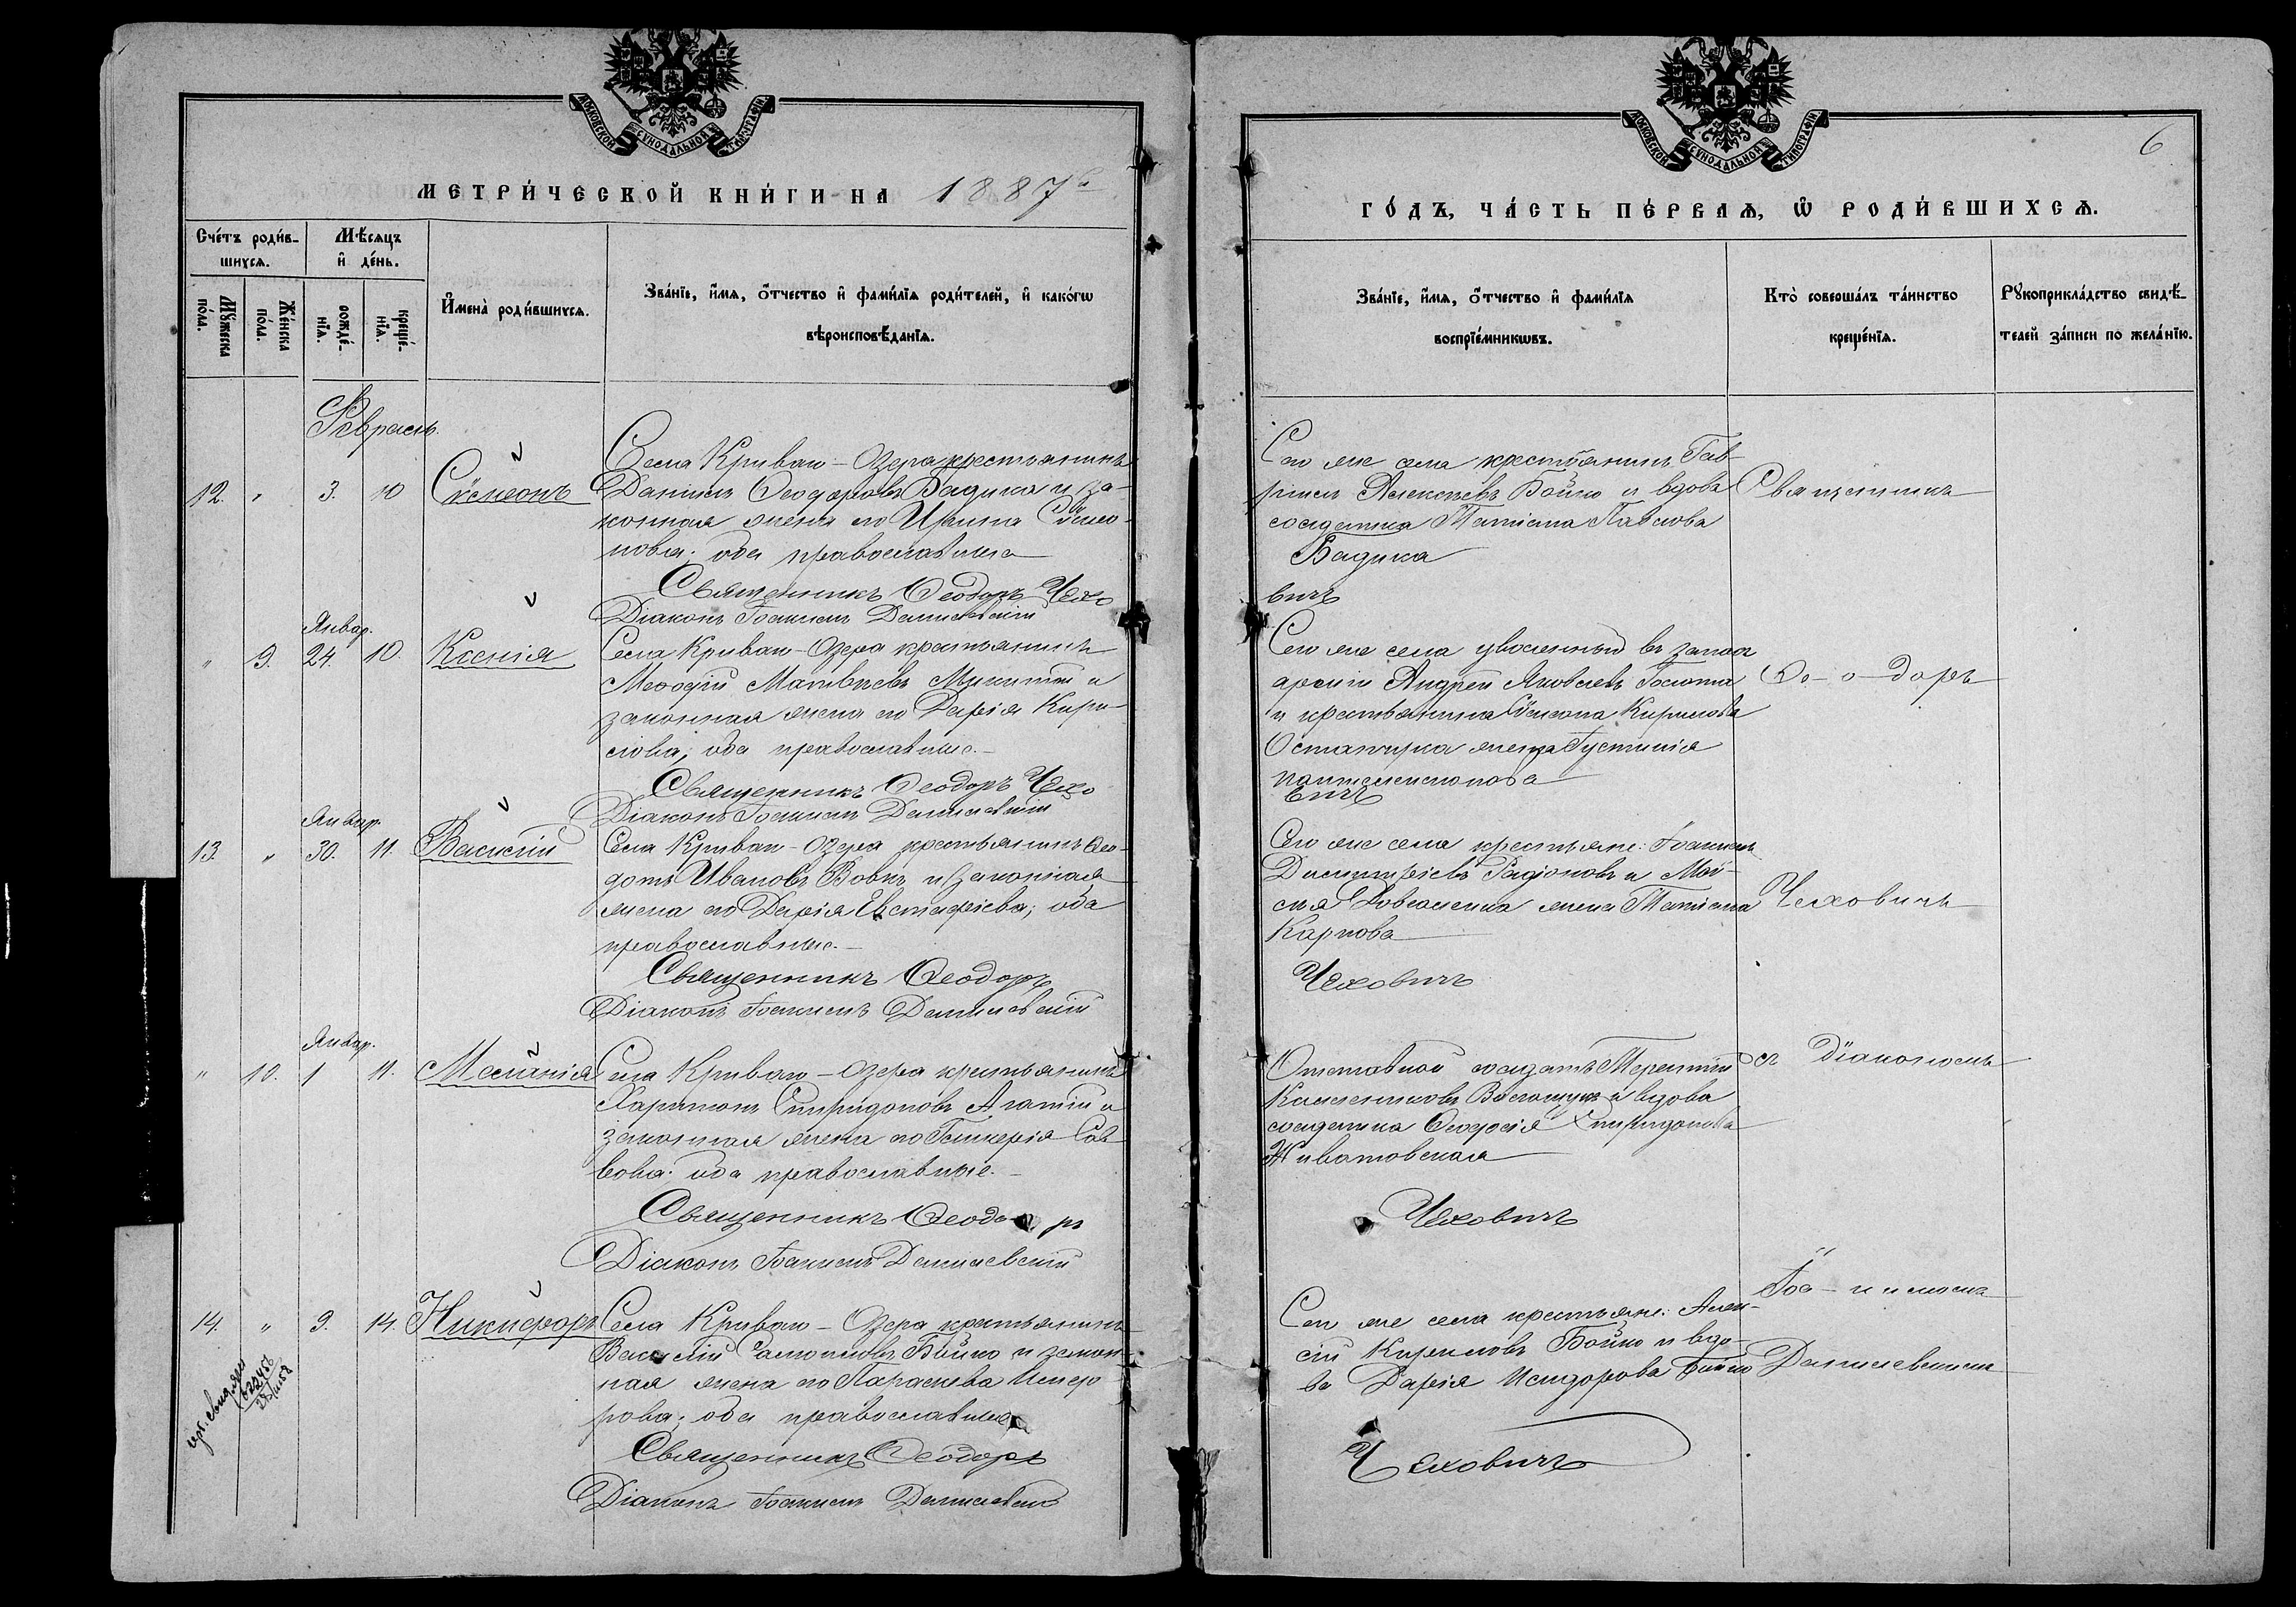 МОСКОВСКОЙ СѴНОДАЛЬНОЙ ТИПОГРАФІИ.
МЕТРИ́ЧЕСКОЙ КНИ́ГИ НА 1887й
Сче́тъ роди́в-
шихсѧ.
Мѣ́сѧцъ
и҆ де́нь.
Мꙋ́жеска
по́ла.
Же́нска
по́ла.
рожде́-
нїѧ.
креще́-
нїѧ.
И҆мена̀ роди́вшихсѧ.
Зва́нїе, и҆́мѧ, ѻ҆́тчество и҆ фами́лїѧ роди́телей, и҆ како́гѡ
вѣроисповѣ́данїѧ.
Февраль.
12. " 3. 10 Сѵмеонъ
Села Криваго-Озера крестьянинъ
Даніилъ Ѳеодоровъ Бадика и за-
конная жена его Ирина Сѵмео-
нова; оба православные
Священникъ Ѳеодоръ Чехо
Діаконъ Іоакимъ Данилевскій
Январ.
" 9. 24. 10. Ксенія
Села Криваго-Озера крестьянинъ
Меѳодій Матвѣевъ Микитій и
законная жена его Дарія Кири-
лова; оба православные.
Священникъ Ѳеодоръ Чехо
Діаконъ Іоакимъ Данилевскій
Январ.
13. " 30. 11. Василій
Села Криваго-Озера крестьянинъ Ѳео-
дотъ Ивановъ Вовкъ и законная
жена его Дарія Евстафіева; оба
православные.
Священникъ Ѳеодоръ
Діаконъ Іоакимъ Данилевскій
Январ.
" 10. 1 11. Меланія
Села Криваго-Озера крестьянинъ
Харитонъ Спиридоновъ Агатій и
законная жена его Гликерія Сав-
вова; оба православные.
Священникъ Ѳеодо ръ
Діаконъ Іоакимъ Данилевскій
14. " 9. 14. Никифоръ
Села Криваго-Озера крестьянинъ
Василій Самоиловъ Бойко и закон-
ная жена его Параскева Исидо
рова; оба православные
Священникъ Ѳеодоръ
Діаконъ Іоакимъ Данилевскій
МОСКОВСКОЙ СѴНОДАЛЬНОЙ ТИПОГРАФІИ.
6
ГО́ДЪ, ЧА́СТЬ ПЕ́РВАѦ, Ѽ РОДИ́ВШИХСѦ.
Зва́нїе, и҆́мѧ, ѻ҆́тчество и҆ фами́лїѧ
воспрїе́мникѡвъ.
Кто̀ соверша́лъ та́инство
креще́нїѧ.
Рꙋкоприкла́дство свидѣ́-
телей за́писи по жела́нїю.
Сего же села крестьянинъ Гав-
ріилъ Алексѣевъ Бойко и вдова
солдатка Татіана Павлова
Бадика
вичъ
Сего же села уволенный въ запасъ
арміи Андрей Яковлевъ Голота
и крестьянина Кирилова
Остапчука жена Густинія
Пантелеимонова
вичъ
Сего же села крестьяне: Іоакимъ
Димитріевъ Радіоновъ и Мой-
сея жена Татіана
Карпова
Чеховичъ
Отставной солдатъ Терентій
Каллениковъ и вдова
солдатка Ѳеодосія Спиридонова
Животовская
Чеховичъ
Сего же села крестьяне: Алек-
сій Кириловъ Бойко и вдо-
ва Дарія Исидорова Бойко
Чеховичъ
Священникъ
Ѳе-о-доръ
Чеховичъ
съ діакономъ
Іоа-кимомъ
Данилевскимъ